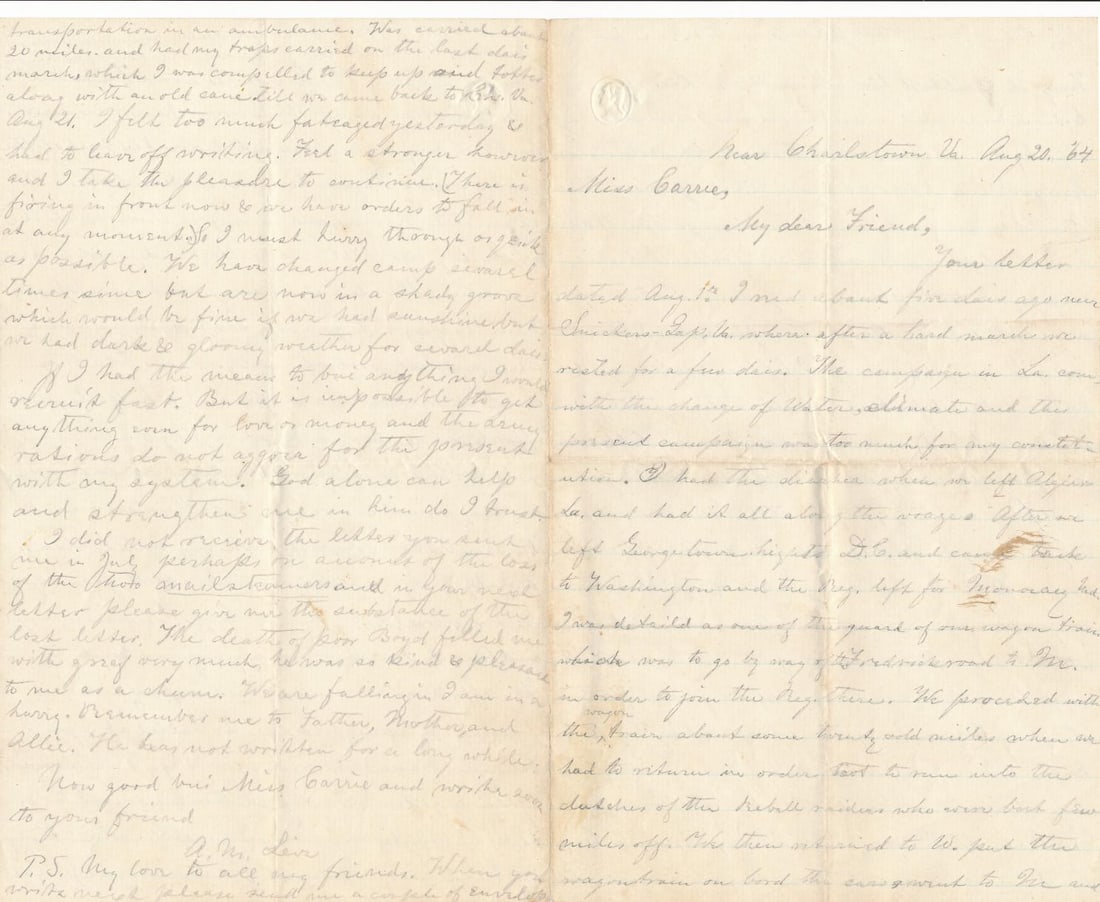 Near Charlstown Va Aug 20. '64
Miss Carrie,
My dear Friend,
Your letter
dated Aug. 1st I recd about five dais ago near
Snickers-Gap, Va. where after a hard march we
rested for a few dais. The campaign in La. com-
with the change of Water, climate and this
present campaign was too much for my constit-
ution. I had the when we left Algiers
La. and had it all along the voyage. After we
left Georgetown hights D.C. and came back
to Washington and the Reg. left for Monocacy Md.
I was detaild as one of the guard of our wagon train
which was to go by way of the Fredrick road to M.
in order to join the Reg. there. We proceded with
the wagon train about some twenty odd miles when we
had to return in order not to run into the
clutches of the Rebell raiders who were but few
miles off. We then returned to W. put the
wagontrain on bord the cars, went to M and
transportation in an ambulance. Was carried about
20 miles. and had my traps carried on the last dais
march, which I was compelled to keep up and
along with an old cane till we came back to Va.
Aug 21. I felt too much fateaged yesterday &
had to leave off writing. Feel a stronger however
and I take the pleasure to continue. (There is
firing in front now & we have orders to fall in
at any moment.) So I must hurry through as quick
as possible. We have changed camp several
times since but are now in a shady grove
which would be fine if we had sunshine, but
we had dark & gloomy weather for several dais.
If I had the means to bui anything I would
recruit fast. But it is impossible to get
anything even for love or money and the army
rations do not aggree for the present
with my system. God alone can help
and strengthen me in him do I trust.
I did not receive the letter you sent
me in July perhaps on account of the loss
of the two mailsteamers and in your next
letter please give me the substance of the
lost letter. The death of poor Boyd filled me
with greef very much, he was so kind & pleasant
to me as a chum. We are falling in I am in a
hurry. Remember me to Father, Mother, and
Allie. He has not written for a long while.
Now good bui Miss Carrie and write soon
to your friend
A. M.
P.S. My love to all my friends. When you
write next please send me a couple of